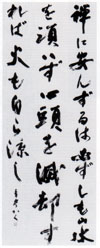 禅に安んずるは必ずしも山水
を須いず心頭を滅却す
れば火も自ら涼し